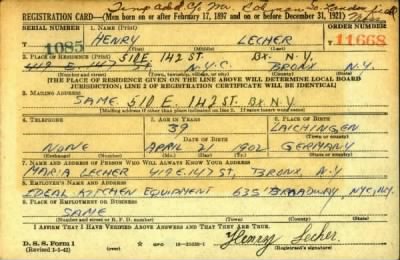 Temp add. c/o Mr.
REGISTRATION CARD—(Men born on or after February 17, 1897 and on or before December 31, 1921)
SERIAL NUMBER 1. NAME (Print) ORDER NUMBER
1085 HENRY LECHER 11668
(First) (Middle) (Last)
510 E. 142 ST. BX. N.Y.
2. PLACE OF RESIDENCE (Print)
419 E. 147 ST. N.Y.C. BRONX N.Y.
(Number and street) (Town, township, village, or city) (County) (State)
[THE PLACE OF RESIDENCE GIVEN ON THE LINE ABOVE WILL DETERMINE LOCAL BOARD
JURISDICTION; LINE 2 OF REGISTRATION CERTIFICATE WILL BE IDENTICAL]
3. MAILING ADDRESS
SAME. 510 E. 142 ST. BX. N.Y
(Mailing address if other than place indicated on line 2. If same insert word same)
4. TELEPHONE 5. AGE IN YEARS 6. PLACE OF BIRTH
39 LAICHINGEN
DATE OF BIRTH (Town or county)
NONE APRIL 21 1902 GERMANY
(Exchange) (Number) (Mo.) (Day) (Yr.) (State or country)
7. NAME AND ADDRESS OF PERSON WHO WILL ALWAYS KNOW YOUR ADDRESS
MARIA LECHER 419 E. 147 ST., BRONX, N.Y
8. EMPLOYER'S NAME AND ADDRESS
IDEAL KITCHEN EQUIPMENT 635 BROADWAY, NYC, N.Y.
9. PLACE OF EMPLOYMENT OR BUSINESS
SAME
(Number and street or R. F. D. number) (Town) (County) (State)
I AFFIRM THAT I HAVE VERIFIED ABOVE ANSWERS AND THAT THEY ARE TRUE.
D. S. S. Form 1
(Revised 1-5-42) GPO Henry Lecher.
(Registrant's signature)